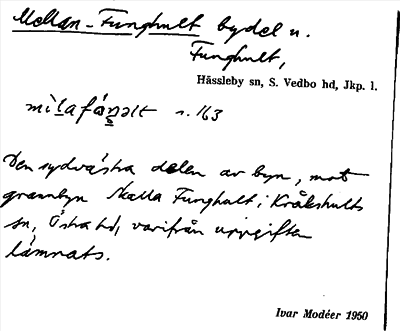 Mellan-Funghult bydel u.
Funghult,
Hässleby sn, S. Vedbo hd, Jkp. l.
s. 163
Den sydvästra delen av byn, mot
grannbyn Skalla Funghult i Kråkshults
sn, Östra hd, varifrån uppgiften
lämnats.
Ivar Modéer 1950